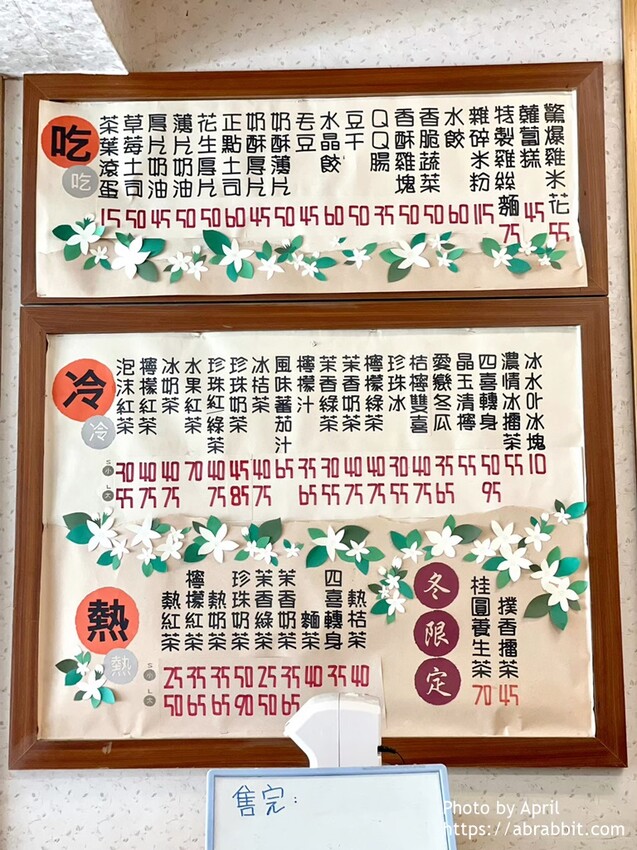 吃
吃
茶葉滾蛋 15
草莓土司 50
厚片奶油 45
薄片奶油 50
花生厚片 50
正點土司 60
奶酥厚片 45
奶酥薄片 50
毛豆 45
水晶餃 60
豆干 50
QQ腸 35
香酥雞塊 50
香脆蔬菜 50
水餃 60
雜碎米粉 115
特製雞絲麵 75
蘿蔔糕 45
驚爆雞米花 55
冷
冷
S小
L大
泡沫紅茶 30 55
檸檬紅茶 40 75
冰奶茶 40 75
水果紅茶 70
珍珠紅/綠茶 40 75
珍珠奶茶 45 85
冰桔茶 40 75
風味蕃茄汁 65
檸檬汁 35 65
茉香綠茶 30 55
茉香奶茶 40 75
檸檬綠茶 40 75
珍珠冰 30 55
桔檸雙喜 40 75
愛戀冬瓜 35 65
晶玉清檸 55
四喜轉身 50 95
濃情冰擂茶 55
冰水or冰塊 10
熱
熱
S小
L大
熱紅茶 25 50
檸檬紅茶 35 65
熱奶茶 35 65
珍珠奶茶 50 90
茉香綠茶 25 50
茉香奶茶 35 65
麵茶 40
四喜轉身 35
熱桔茶 40
冬限定
桂圓養生茶 70
撲香擂茶 45
售完:
Photo by April
https://abrabbit.com/